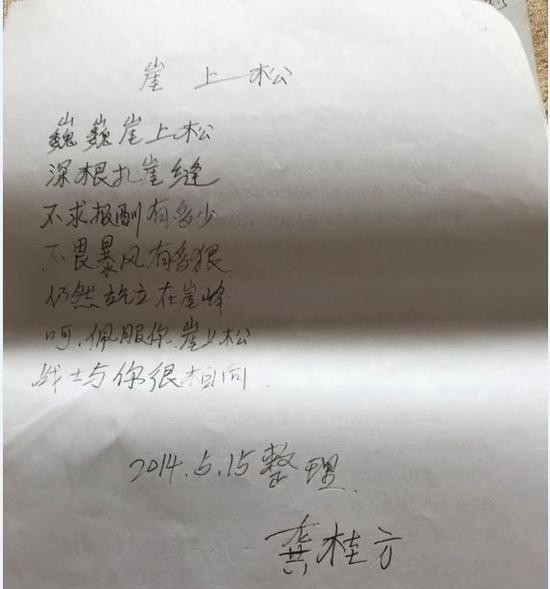 崖上松
巍巍崖上松
深根扎崖缝
不求报酬有多少
不畏暴风有多狠
仍然屹立在崖峰
呵,佩服你,崖上松
战士与你很相同.
2014.5.15整理
龚桂方